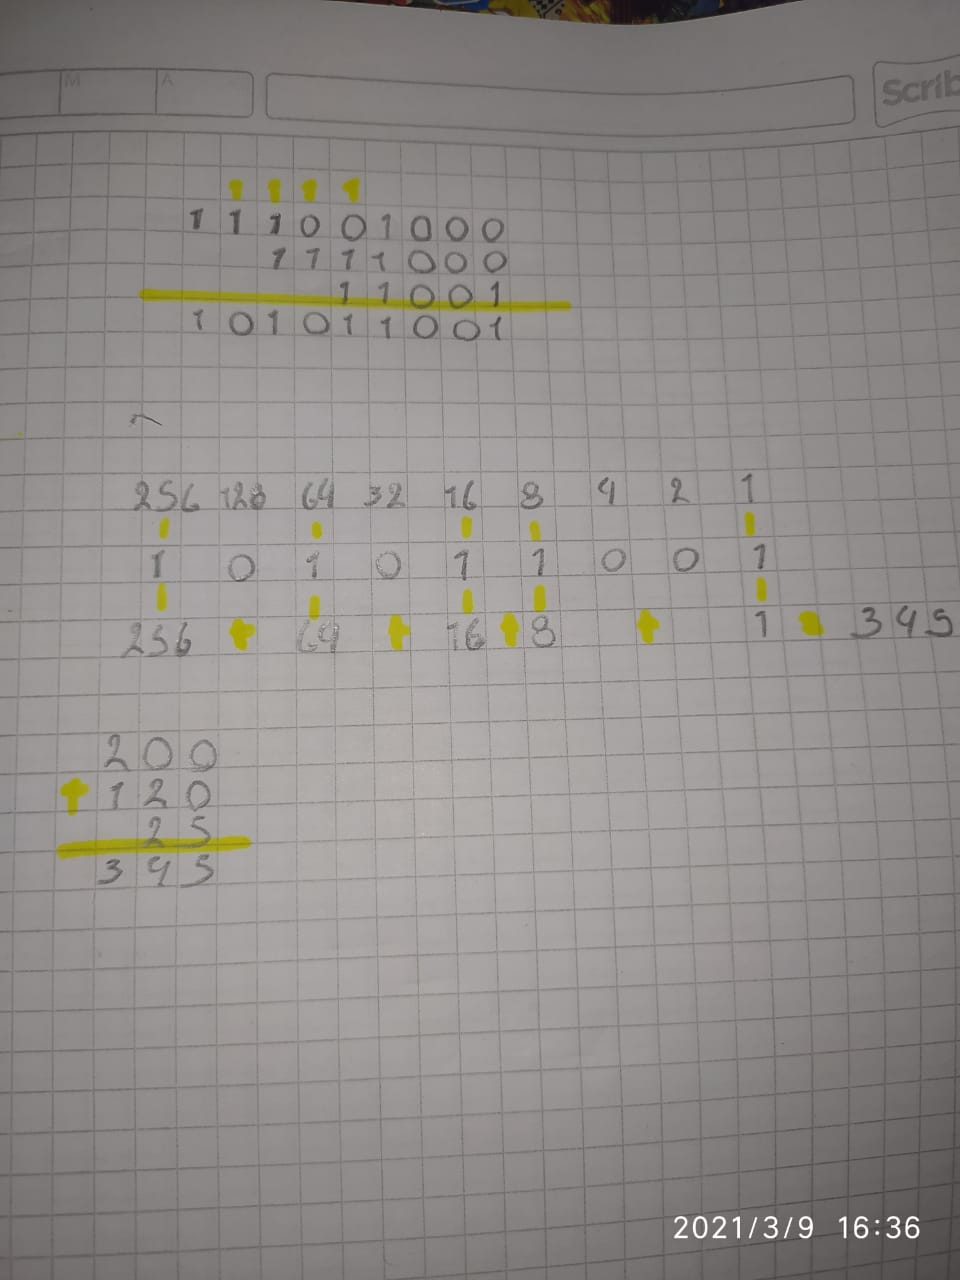 M A Scrib
1 1 1 1
1 1 1 0 0 1 0 0 0
1 1 1 1 0 0 0
1 1 0 0 1
1 0 1 0 1 1 0 0 1
256 128 64 32 16 8 4 2 1
1 0 1 0 1 1 0 0 1
256 + 64 + 16 + 8 + 1 = 345
200
+ 120
25
345
2021/3/9 16:36